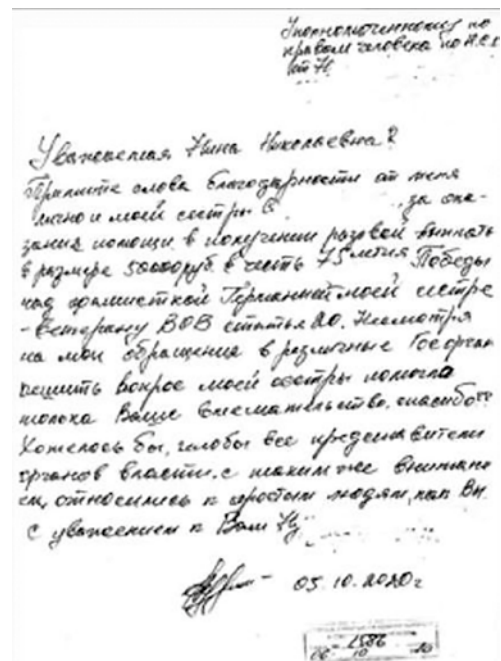 Уполномоченному по
правам человека по А.С.К
от Н.
Уважаемая Нина Николаевна!
Примите слова благодарности от меня
лично и моей сестры С за ока-
зание помощи в получении разовой выплаты
в размере 50000 руб. в честь 75 летия Победы
над фашисткой Германией моей сестре
- Ветерану ВОВ статья 20. Несмотря
на мои обращения в различные Госорган
решить вопрос моей сестры помогло
только Ваше вмешательство, спасибо!
Хотелось бы, чтобы все представители
органов власти с таким же внимани
ем, относились к простым людям, как Вы.
С уважением к Вам Н
05.10.2020г
2857